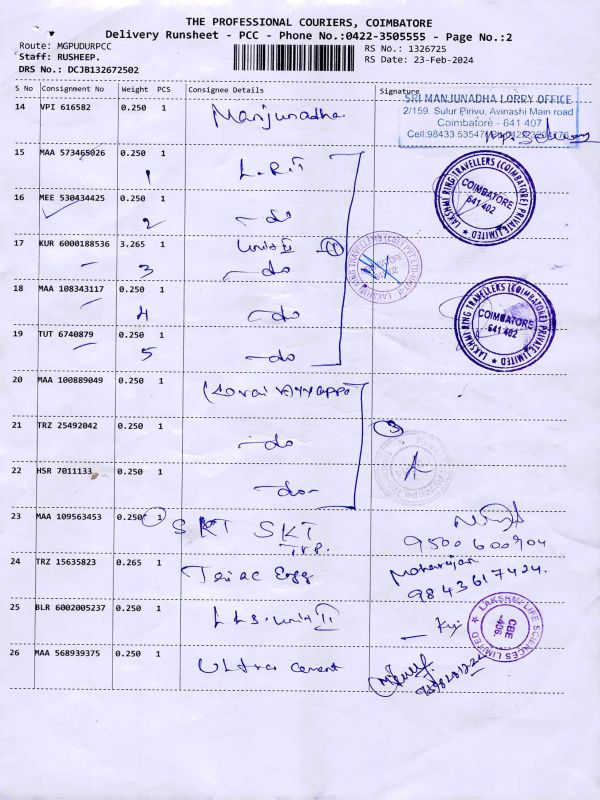 THE PROFESSIONAL COURIERS, COIMBATORE
Delivery Runsheet - PCC - Phone No.:0422-3505555 - Page No.:2
Route: MGPUDURPCC
RS No.: 1326725
Staff: RUSHEEP.
RS Date: 23-Feb-2024
DRS No.: DCJB132672502
S No Consignment No Weight PCS Consignee Details Signature
14 VPI 616582 0.250 1 Manjunadha
SRI MANJUNADHA LORRY OFFICE
2/159, Sulur Pirivu, Avinashi Main road
Coimbatore - 641 407
15 MAA 573465026 0.250 1 L.R.T
1
LAKSHMI RING TRAVELLERS (COIMBATORE) PRIVATE LIMITED
COIMBATORE
641 402
16 MEE 530434425 0.250 1 -do
2
17 KUR 6000188536 3.265 1 Unit II
3 -do
18 MAA 108343117 0.250 1 -do
4
LAKSHMI RING TRAVELLERS (COIMBATORE) PRIVATE LIMITED
COIMBATORE
641 402
19 TUT 6740879 0.250 1 -do
5
20 MAA 100889049 0.250 1
21 TRZ 25492042 0.250 1 -do
3
22 HSR 7011133 0.250 1 -do-
23 MAA 109563453 0.250 1 SKT SKT
9500600904
24 TRZ 15635823 0.265 1
9843617424.
25 BLR 6002005237 0.250 1 LLS. Unit II
LAKSHMI LIFE SCIENCES LIMITED
CBE
-406.
26 MAA 568939375 0.250 1 Ultra cement